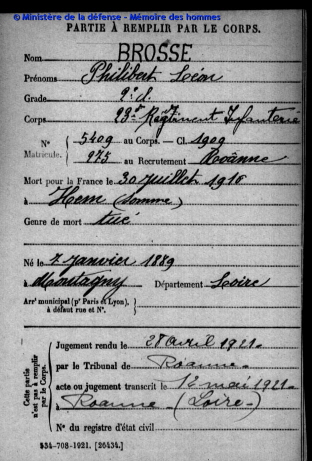 © Ministère de la défense - Mémoire des hommes
PARTIE À REMPLIR PAR LE CORPS.
Nom BROSSE
Prénoms Philibert Léon
Grade 2e cl.
Corps 23e Régiment Infanterie
N° Matricule. { 5409 au Corps. — Cl. 1909
975 au Recrutement Roanne
Mort pour la France le 30 juillet 1916
à Hem (Somme)
Genre de mort tué
Né le 7 janvier 1889
à Montagny Département Loire
Arrt municipal (pr Paris et Lyon),
à défaut rue et N°.
Cette partie n'est pas à remplir par le Corps.
Jugement rendu le 28 avril 1921
par le Tribunal de Roanne
acte ou jugement transcrit le 12 mai 1921
à Roanne (Loire)
N° du registre d'état civil
534-708-1921. [26434.]